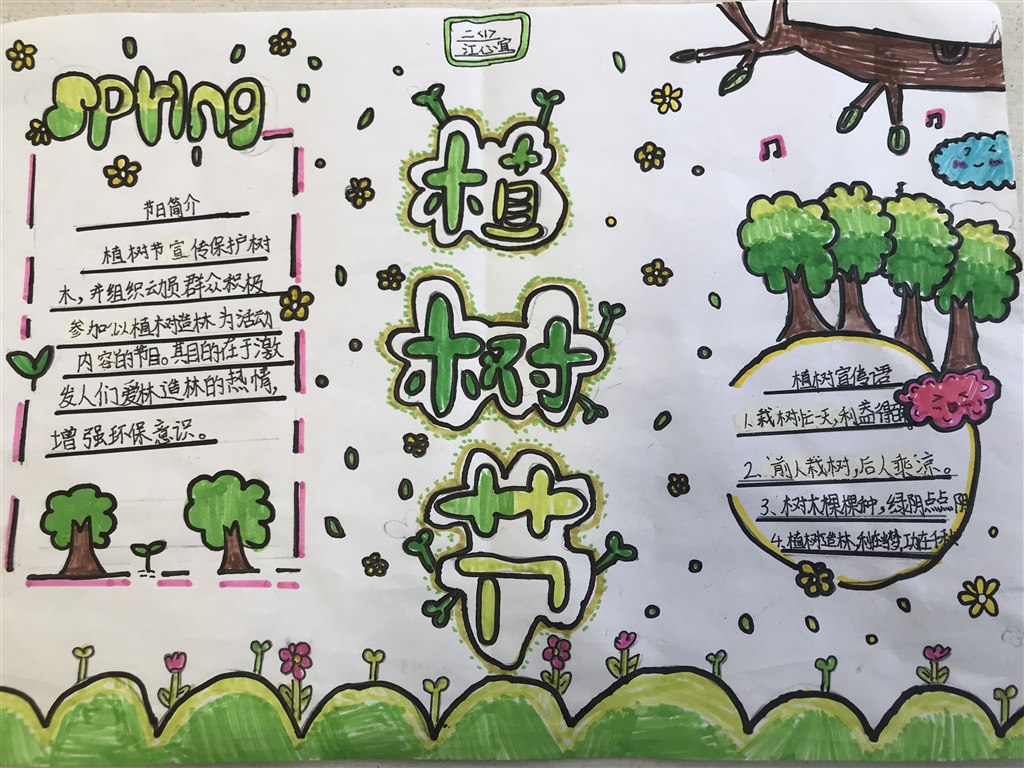 二〈1〉
江心宜
spring
植
树
节
节日简介
植树节宣传保护树
木，并组织动员群众积极
参加以植树造林为活动
内容的节目。其目的在于激
发人们爱林造林的热情，
增强环保意识。
植树宣传语
1、栽树忙一天，利益得
2、前人栽树，后人乘凉。
3、树木棵棵种，绿阴点点阴
4、植树造林，利在当代，功在千秋